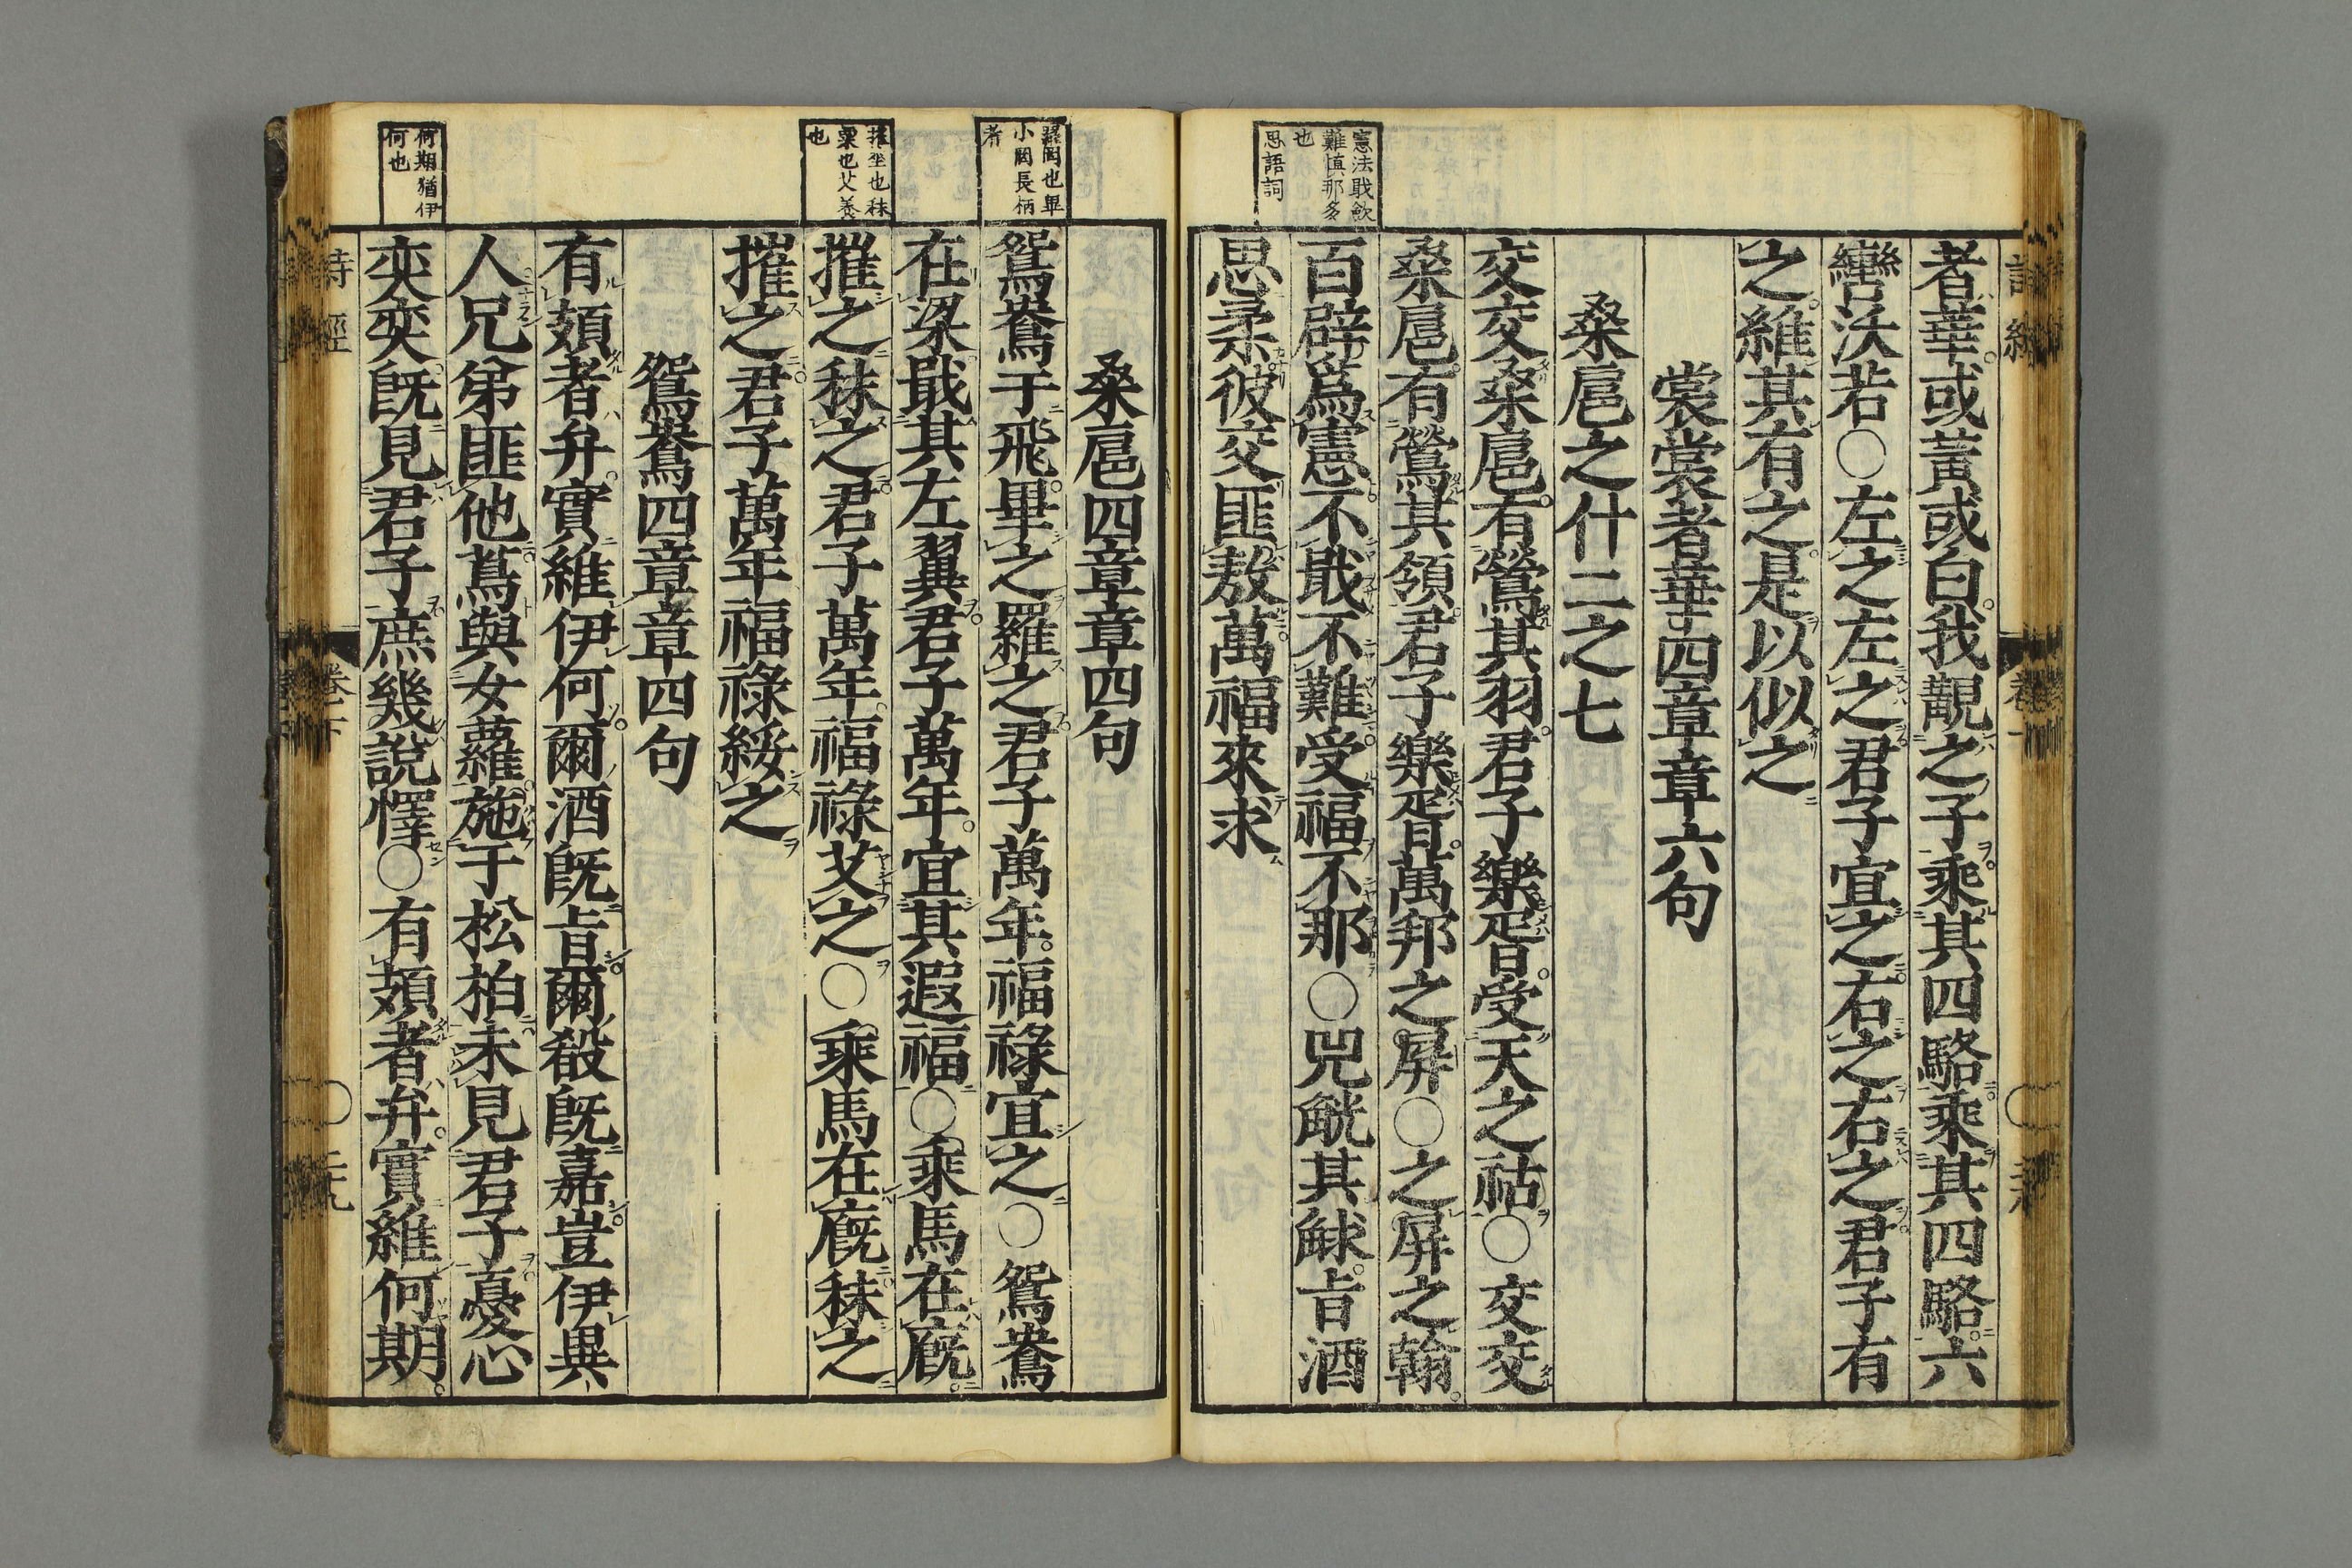 憲法戢歛
難愼那多
也
思語詞
者華或黃或白我覯之子乘其四駱乘其四駱六
轡沃若○左之左之君子宜之右之右之君子有
之維其有之是以似之
裳裳者華四章章六句
桑扈之什二之七
交交桑扈有鶯其羽君子樂胥受天之祜○交交
桑扈有鶯其領君子樂胥萬邦之屏○之屏之翰
百辟爲憲不戢不難受福不那○兕觥其觩旨酒
思柔彼交匪敖萬福來求
罬罔也畢
小罔長柄
者
摧莝也秣
粟也艾養
也
何期猶伊
何也
桑扈四章章四句
鴛鴦于飛畢之羅之君子萬年福祿宜之○鴛鴦
在梁戢其左翼君子萬年宜其遐福○乘馬在廐
摧之秣之君子萬年福祿艾之○乘馬在廐秣之
摧之君子萬年福祿綏之
鴛鴦四章章四句
有頍者弁實維伊何爾酒旣旨爾殽旣嘉豈伊異
人兄弟匪他蔦與女蘿施于松柏未見君子憂心
奕奕旣見君子庶幾說懌○有頍者弁實維何期
詩經